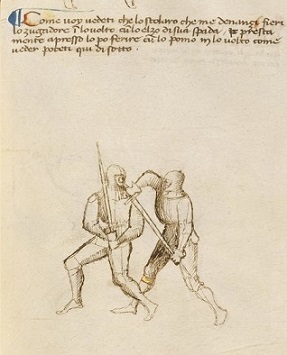 Come voy vedeti che lo scolaro che me denançi fieri
lo zugadore in lo volte cū lo elzo di sua spada, presta
mente apresso lo po ferire cū lo pomo in lo volto come
veder poteti qui di sotto.